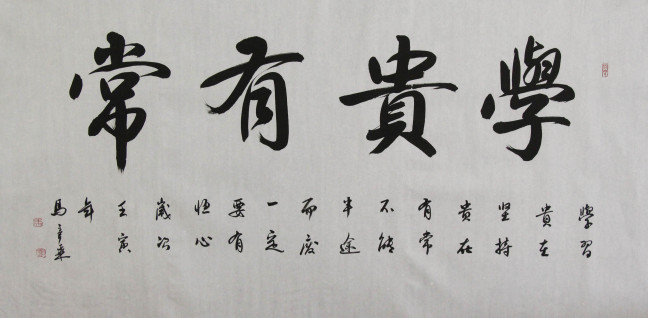 學貴有常
學習
貴在
坚持
貴在
有常
不能
半途
而废
一定
要有
恒心
歲次
壬寅
年
馬